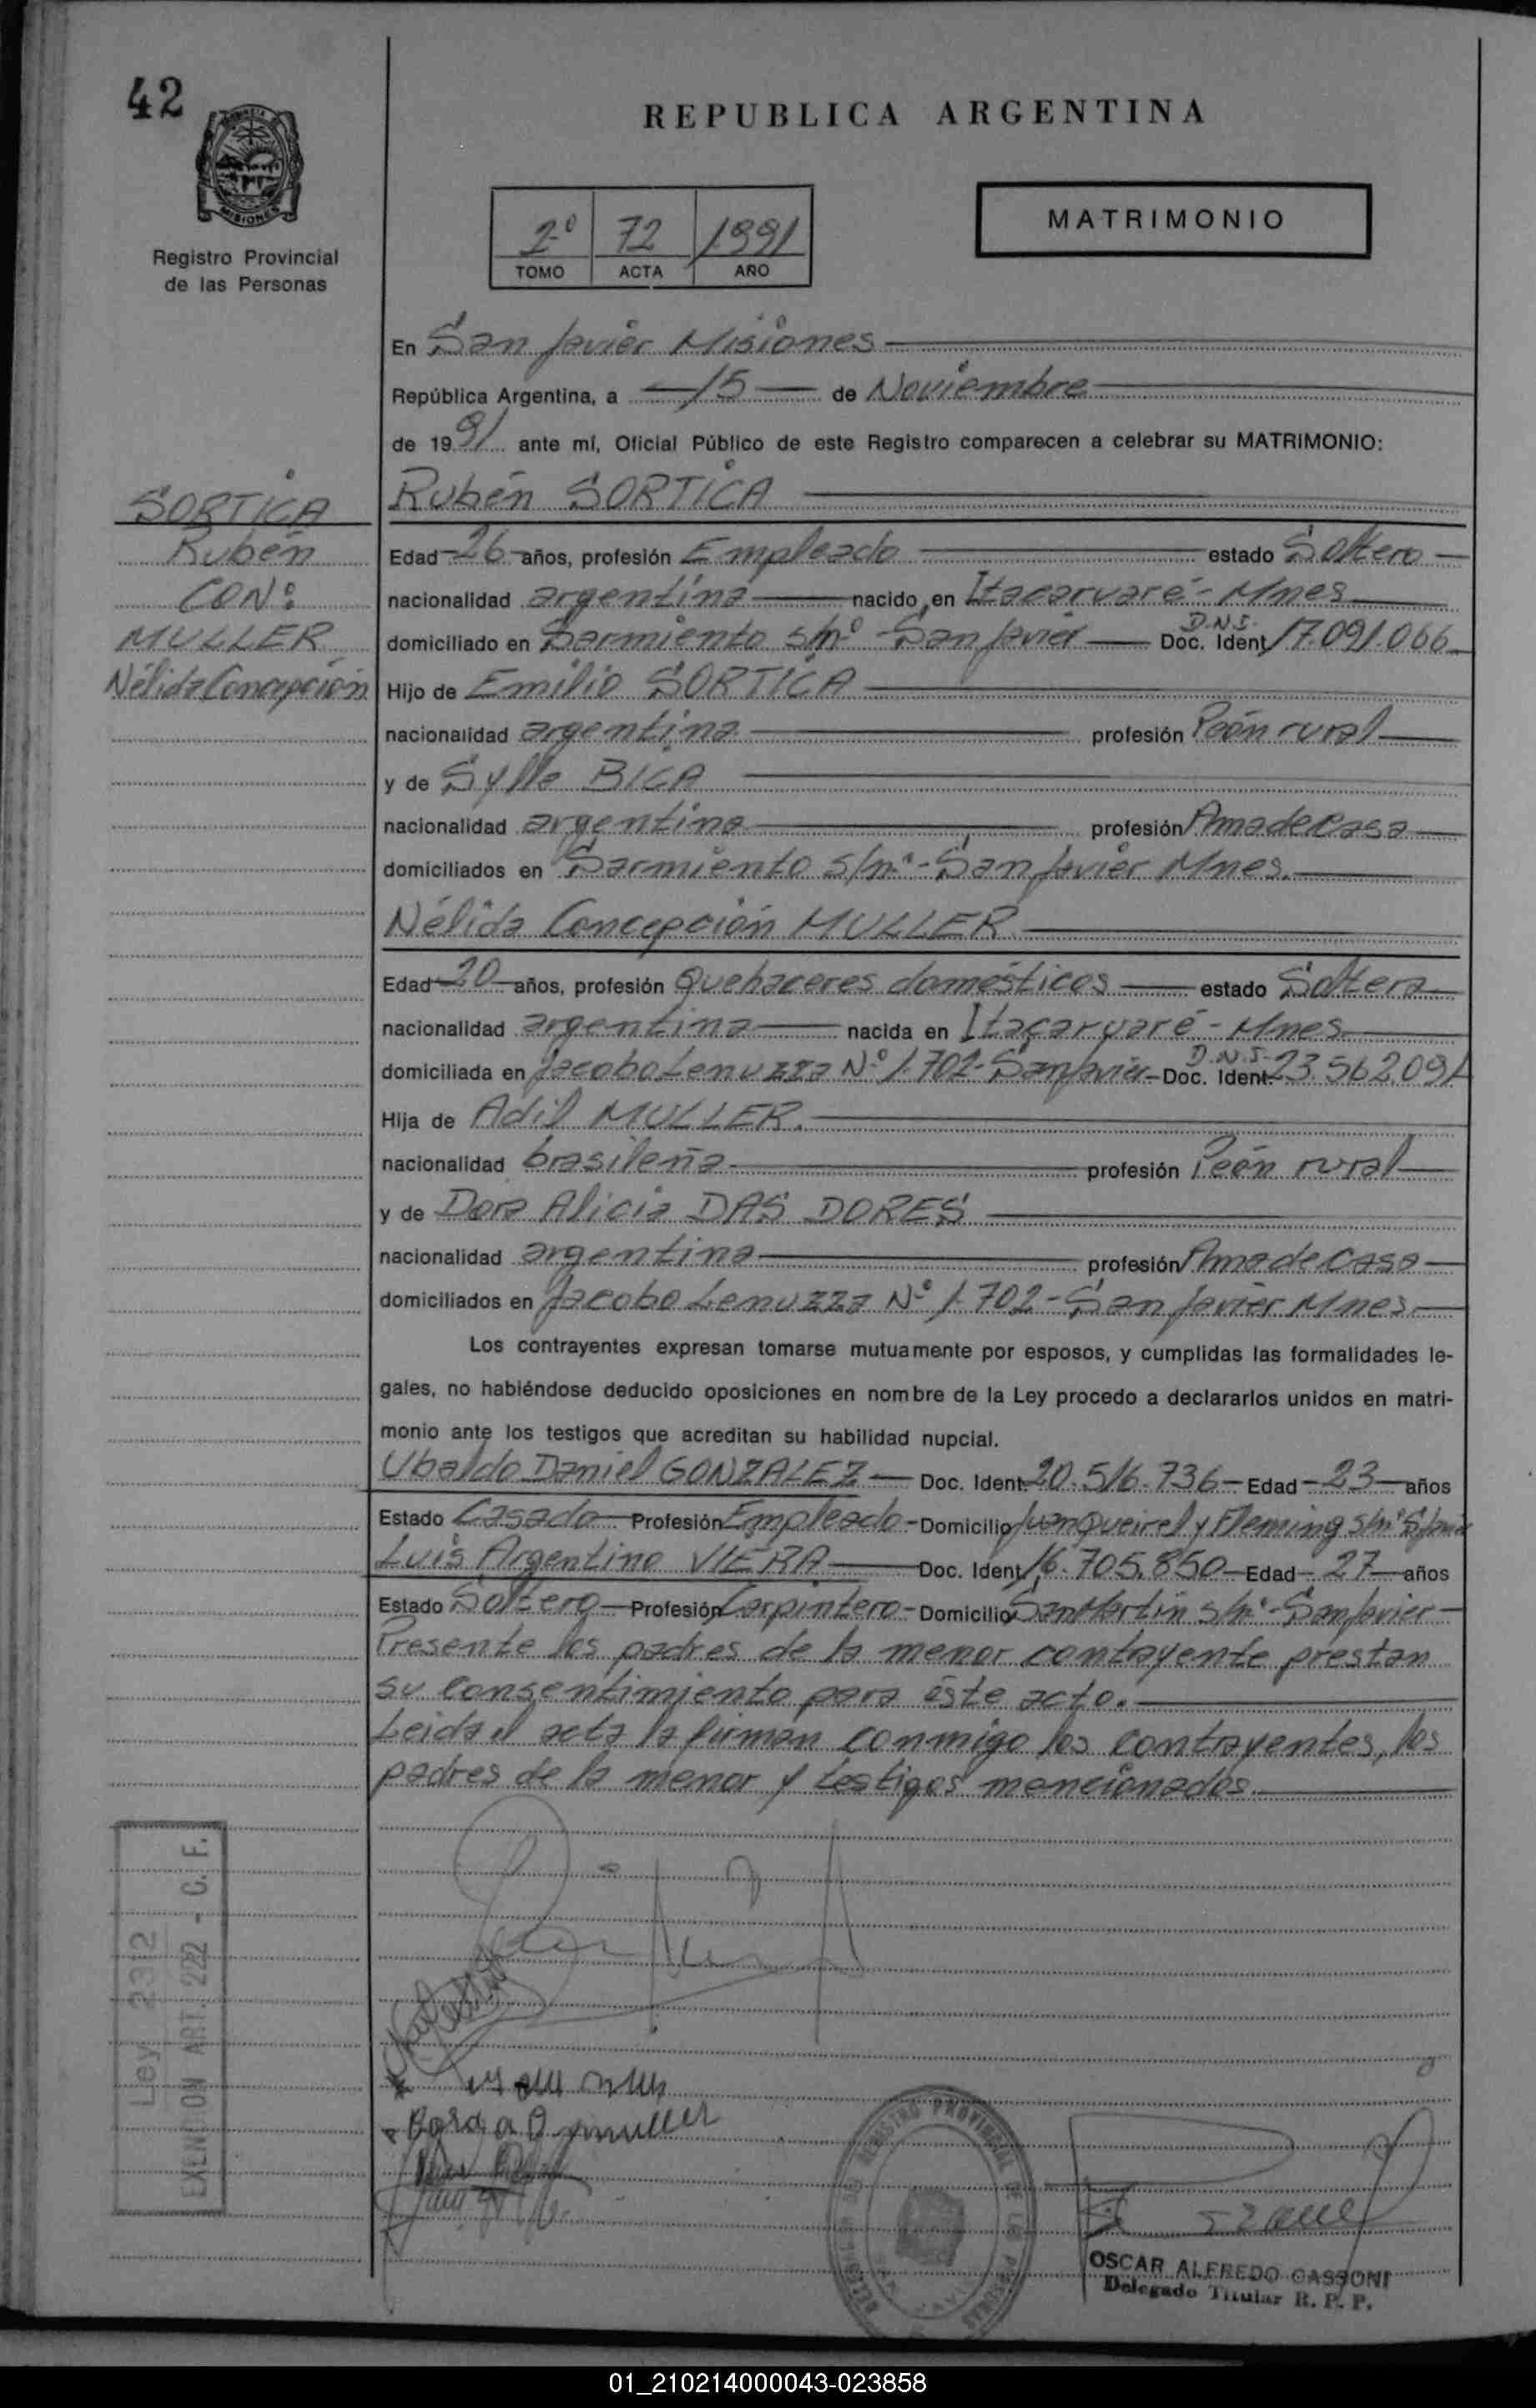 42
REPUBLICA ARGENTINA
MISIONES
Registro Provincial
de las Personas
2º 72 1991
TOMO ACTA AÑO
MATRIMONIO
En San Javier Misiones
República Argentina, a 15 de Noviembre
de 1991 ante mí, Oficial Público de este Registro comparecen a celebrar su MATRIMONIO:
SORTICA
Rubén
CON:
MULLER
Nélida Concepción
Rubén SORTICA
Edad 26 años, profesión Empleado estado Soltero
nacionalidad argentina nacido en Itacaruaré - Mnes
domiciliado en Sarmiento s/nº - San Javier D.N.I. Doc. Ident 17.091.066
Hijo de Emilio SORTICA
nacionalidad argentina profesión Peón rural
y de Sylle BICA
nacionalidad argentina profesión Ama de casa
domiciliados en Sarmiento s/nº - San Javier Mnes.
Nélida Concepción MULLER
Edad 20 años, profesión Quehaceres domésticos estado Soltera
nacionalidad argentina nacida en Itacaruaré - Mnes
domiciliada en Jacobo Lenuzza Nº 1.702 - San Javier - D.N.I. Doc. Ident. 23.562.091
Hija de Adil MULLER.
nacionalidad brasileña profesión Peón rural
y de Dora Alicia DAS DORES
nacionalidad argentina profesión Ama de casa
domiciliados en Jacobo Lenuzza Nº 1.702 - San Javier Mnes.
Los contrayentes expresan tomarse mutuamente por esposos, y cumplidas las formalidades le-
gales, no habiéndose deducido oposiciones en nombre de la Ley procedo a declararlos unidos en matri-
monio ante los testigos que acreditan su habilidad nupcial.
Ubaldo Daniel GONZALEZ Doc. Ident. 20.516.736 Edad 23 años
Estado Casado Profesión Empleado - Domicilio Juan Queirel y Fleming s/nº
Luis Argentino VIERA Doc. Ident 16.705.850 Edad 27 años
Estado Soltero Profesión Carpintero - Domicilio San Martin s/nº - San Javier
Presente los padres de la menor contrayente prestan
su consentimiento para éste acto.
Leida el acta la firman conmigo los contrayentes, los
padres de la menor y testigos mencionados.
Ley 2312
EXENCION ART. 222 - C. F.
REGISTRO PROVINCIAL DE LAS PERSONAS
OSCAR ALFREDO CASSONI
Delegado Titular R. P. P.
01_210214000043-023858